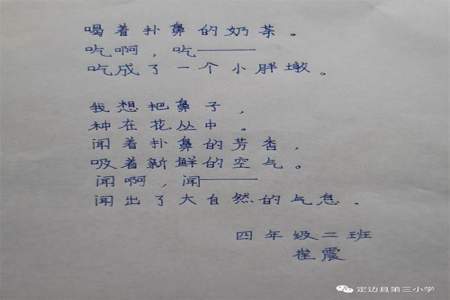 喝着扑鼻的奶茶。
吃啊，吃——
吃成了一个小胖墩。
我想把鼻子，
种在花丛中。
闻着扑鼻的芳香，
吸着新鲜的空气。
闻啊，闻——
闻出了大自然的气息．
四年级二班
崔震
定边县第三小学